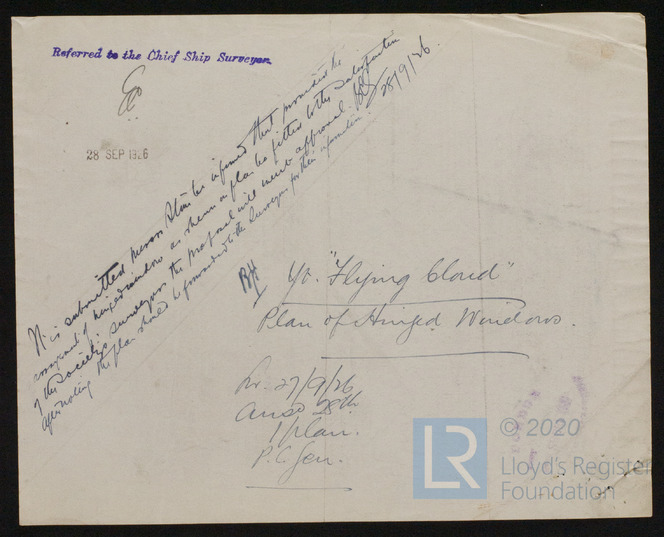 Referred to the Chief Ship Surveyor.
28 SEP 1926
It is submitted Messrs be informed that provided the
arrangement of hinged windows as shewn on plan be fitted to the satisfaction
of the Society's surveyors the proposal will merit approval.
After noting the plan should be forwarded to the Surveyors for their information.
28/9/26.
Yt. "Flying Cloud"
Plan of Hinged Windows.
Lr. 27/9/26
Ansd 28th
1 plan.
P.C. Gen.
© 2020
LR
Lloyd's Register
Foundation